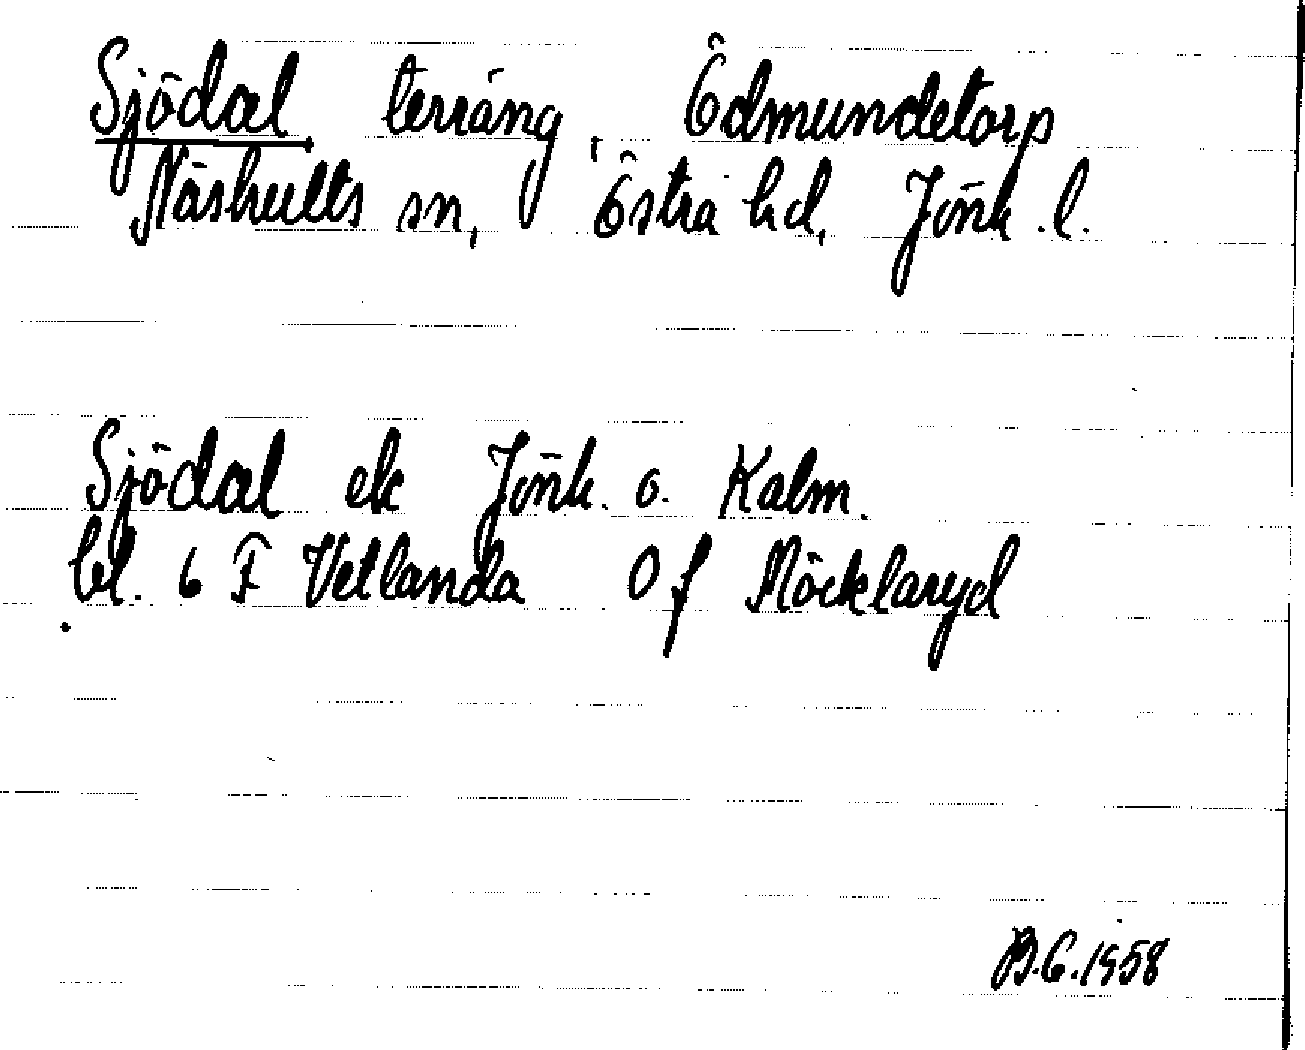 Sjödal, terräng, Ödmundetorp
Näshults sn, Östra hd, Jönk.l.
Sjödal ek Jönk. o. Kalm.
bl. 6 F Vetlanda O f Möcklaryd
B.G.1958